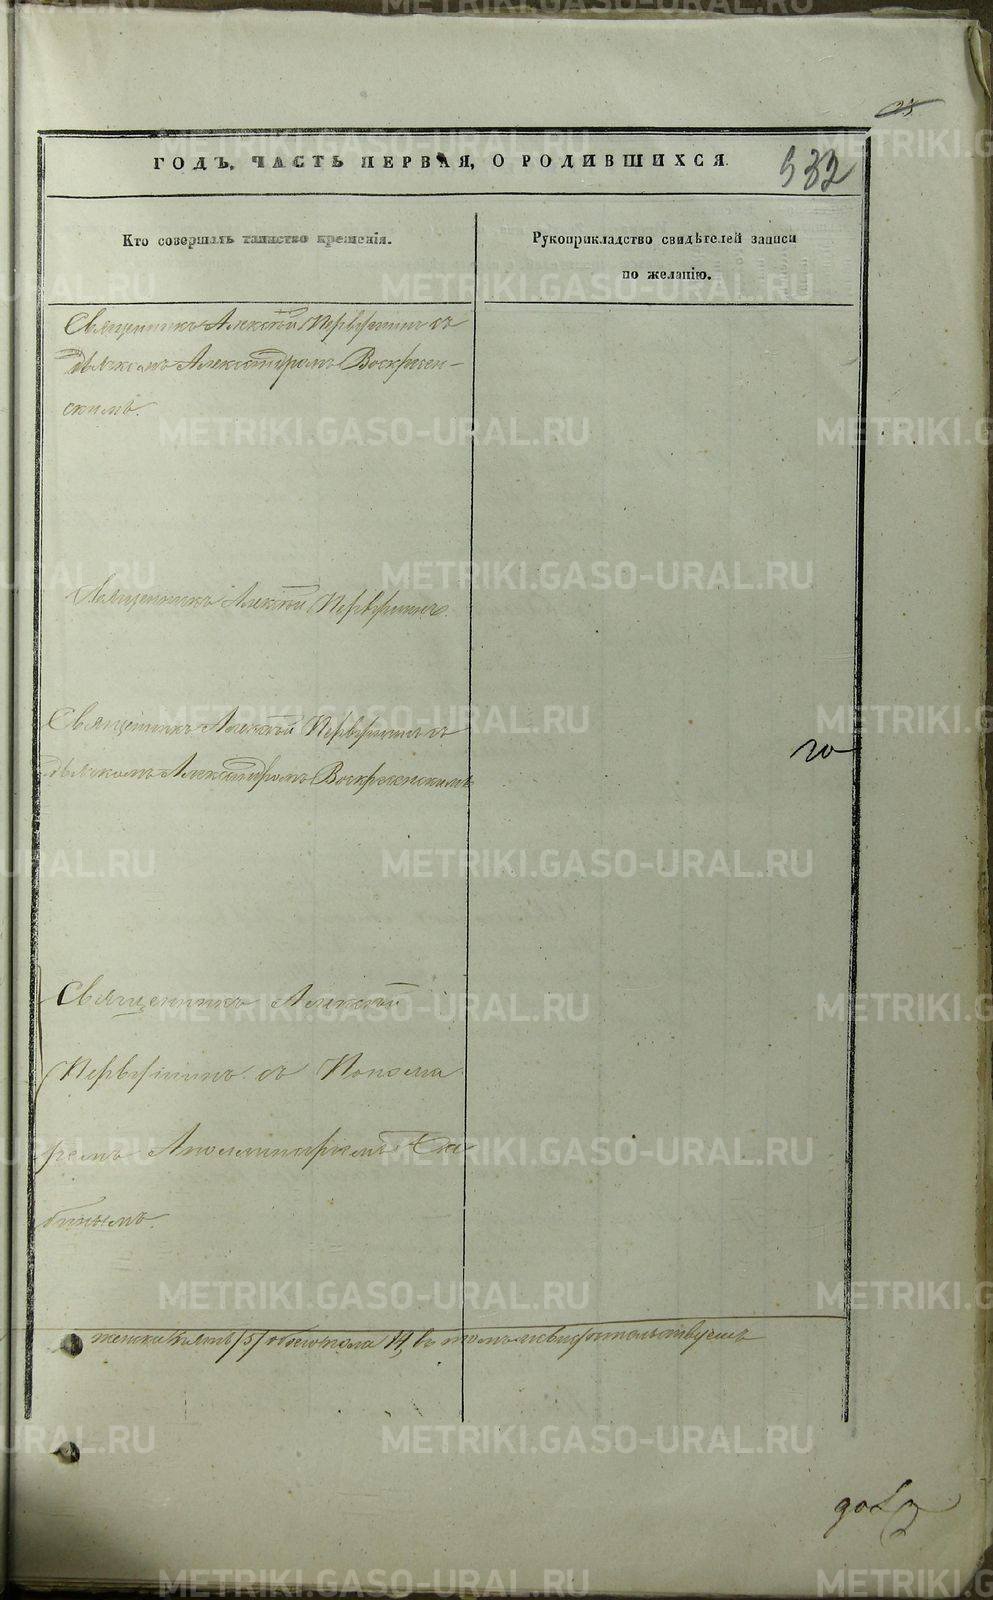 ГОДЪ, ЧАСТЬ ПЕРВАЯ, О РОДИВШИХСЯ.
532
Кто совершалъ таинство крещенія.
Рукоприкладство свидѣтелей записи
по желанію.
Священникъ Алексѣй Первушинъ съ
дьячкомъ Александромъ Воскресен-
скимъ.
Священникъ Алексѣй Первушинъ.
Священникъ Алексѣй Первушинъ съ
дьячкомъ Александромъ Воскресенскимъ
го
Священникъ Алексѣй
Первушинъ съ Понома
ремъ Аполлинаріемъ
женска пять /5/ обоего пола 14, въ томъ и свидѣтельствуемъ
METRIKI.GASO-URAL.RU